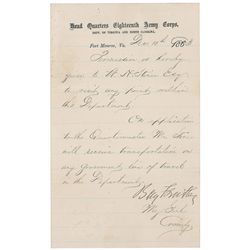 Head Quarters Eighteenth Army Corps,
DEPT. OF VIRGINIA AND NORTH CAROLINA,
Fort Monroe, Va. Dec 10th 1863
Permission is hereby
given to W. N. Stein Esq
to visit any point within
the Department.
On application
to the Quartermaster Mr Stein
will receive transportation on
any government line of travel
in the Department.
Benj F Butler
Maj Genl
Comdg